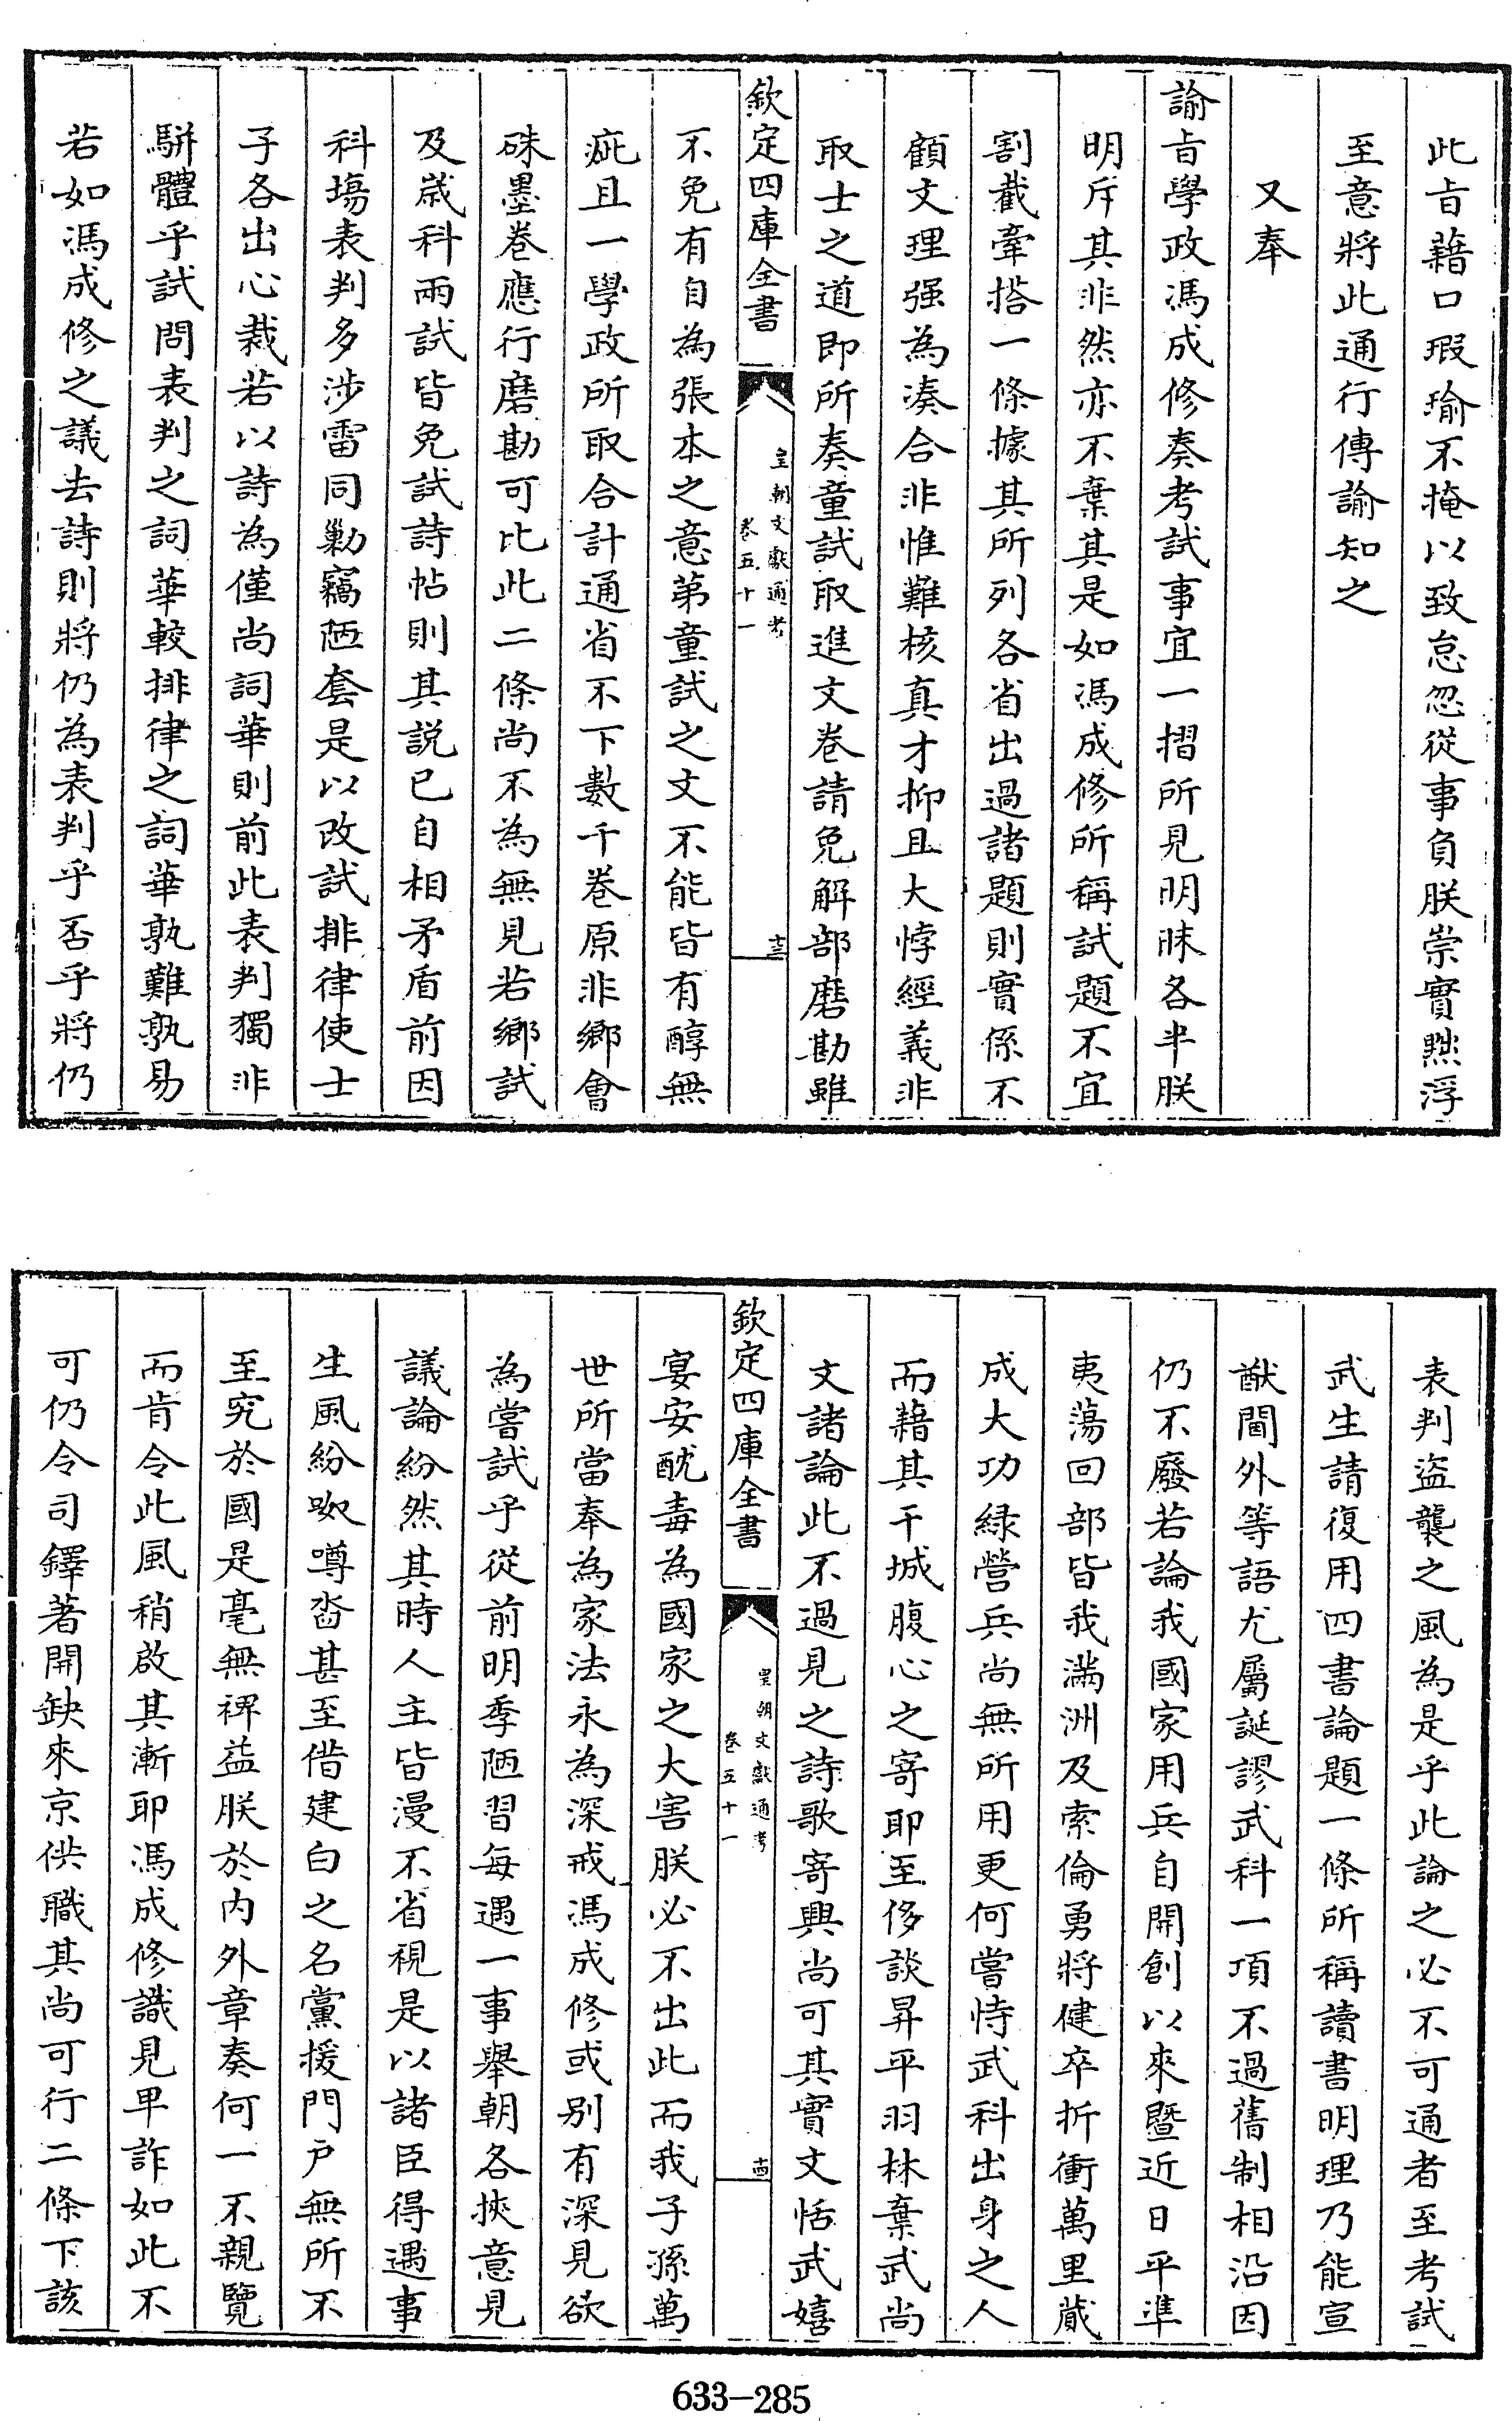 此㫖藉口瑕瑜不掩以致怠忽從事負朕崇實黜浮
至意將此通行傳諭知之
又奉
諭㫖學政馮成修奏考試事宜一摺所見明昧各半朕
明斥其非然亦不棄其是如馮成修所稱試題不宜
割截牽搭一條據其所列各省出過諸題則實係不
顧文理强為凑合非惟難核真才抑且大悖經義非
取士之道即所奏童試取進文卷請免解部磨勘雖
欽定四庫全書
皇朝文獻通考
卷五十一
十三
不免有自為張本之意第童試之文不能皆有醇無
疵且一學政所取合計通省不下數千卷原非鄉會
硃墨卷應行磨勘可比此二條尚不為無見若鄉試
及歲科兩試皆免試詩帖則其説已自相矛盾前因
科塲表判多涉雷同勦竊陋套是以改試排律使士
子各出心裁若以詩為僅尚詞華則前此表判獨非
駢體乎試問表判之詞華較排律之詞華孰難孰易
若如馮成修之議去詩則將仍為表判乎否乎將仍
表判盜襲之風為是乎此論之必不可通者至考試
武生請復用四書論題一條所稱讀書明理乃能宣
猷閫外等語尤屬誕謬武科一項不過舊制相沿因
仍不廢若論我國家用兵自開創以來暨近日平準
夷蕩回部皆我滿洲及索倫勇將健卒折衝萬里蕆
成大功緑營兵尚無所用更何嘗恃武科出身之人
而藉其干城腹心之寄耶至侈談昇平羽林棄武尚
文諸論此不過見之詩歌寄興尚可其實文恬武嬉
欽定四庫全書
皇朝文獻通考
卷五十一
十四
宴安酖毒為國家之大害朕必不出此而我子孫萬
世所當奉為家法永為深戒馮成修或别有深見欲
為嘗試乎從前明季陋習每遇一事舉朝各挾意見
議論紛然其時人主皆漫不省視是以諸臣得遇事
生風紛呶噂沓甚至借建白之名黨援門户無所不
至究於國是毫無裨益朕於内外章奏何一不親覽
而肯令此風稍啟其漸耶馮成修識見卑詐如此不
可仍令司鐸著開缺來京供職其尚可行二條下該
633-285